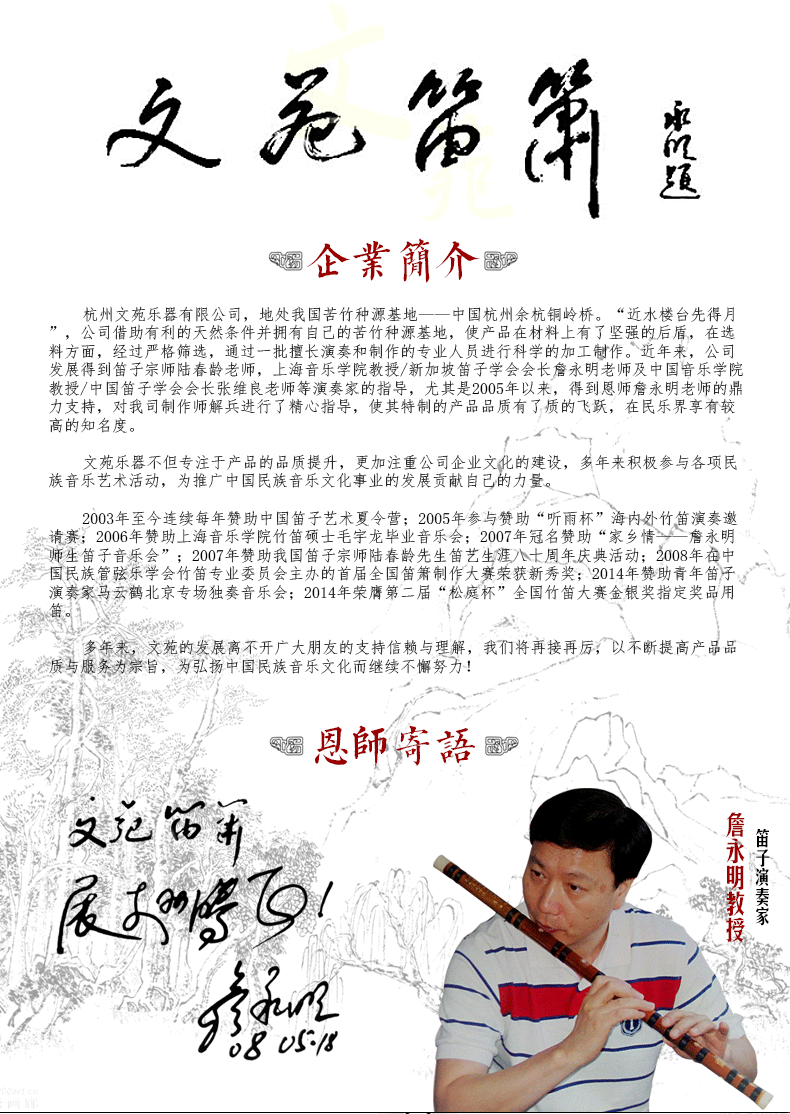 文苑笛箫
永明题
企業簡介
杭州文苑乐器有限公司，地处我国苦竹种源基地——中国杭州余杭铜岭桥。“近水楼台先得月
”，公司借助有利的天然条件并拥有自己的苦竹种源基地，使产品在材料上有了坚强的后盾，在选
料方面，经过严格筛选，通过一批擅长演奏和制作的专业人员进行科学的加工制作。近年来，公司
发展得到笛子宗师陆春龄老师，上海音乐学院教授/新加坡笛子学会会长詹永明老师及中国音乐学院
教授/中国笛子学会会长张维良老师等演奏家的指导，尤其是2005年以来，得到恩师詹永明老师的鼎
力支持，对我司制作师解兵进行了精心指导，使其特制的产品品质有了质的飞跃，在民乐界享有较
高的知名度。
文苑乐器不但专注于产品的品质提升，更加注重公司企业文化的建设，多年来积极参与各项民
族音乐艺术活动，为推广中国民族音乐文化事业的发展贡献自己的力量。
2003年至今连续每年赞助中国笛子艺术夏令营；2005年参与赞助“听雨杯”海内外竹笛演奏邀
请赛；2006年赞助上海音乐学院竹笛硕士毛宇龙毕业音乐会；2007年冠名赞助“家乡情——詹永明
师生笛子音乐会”；2007年赞助我国笛子宗师陆春龄先生笛艺生涯八十周年庆典活动；2008年在中
国民族管弦乐学会竹笛专业委员会主办的首届全国笛箫制作大赛荣获新秀奖；2014年赞助青年笛子
演奏家马云鹤北京专场独奏音乐会；2014年荣膺第二届“松庭杯”全国竹笛大赛金银奖指定奖品用
笛。
多年来，文苑的发展离不开广大朋友的支持信赖与理解，我们将再接再厉，以不断提高产品品
质与服务为宗旨，为弘扬中国民族音乐文化而继续不懈努力！
恩師寄語
文苑笛箫
詹永明
08 05.18
詹永明教授
笛子演奏家